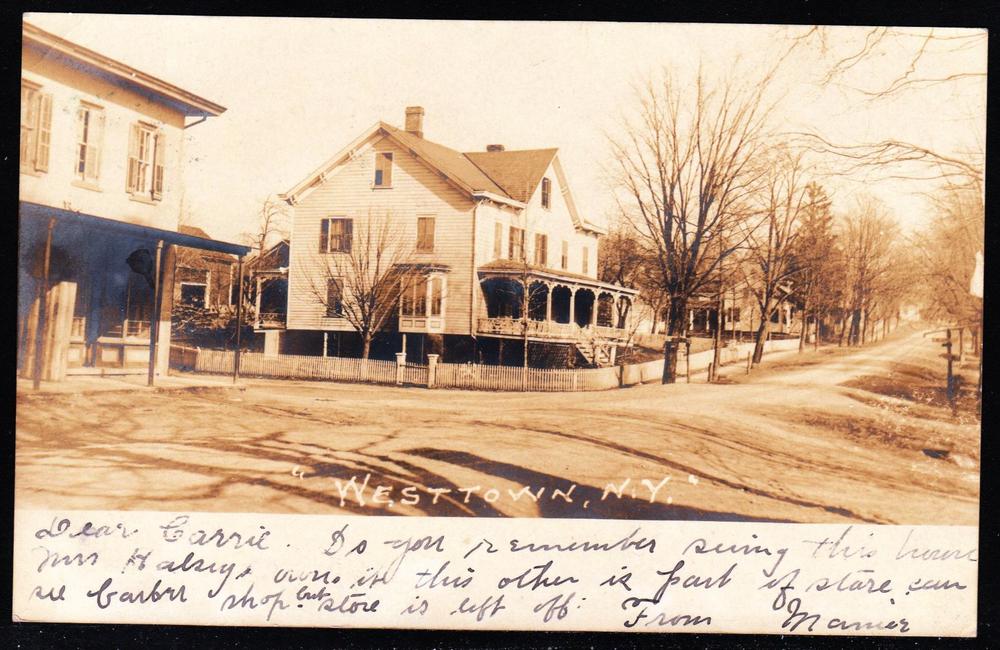 "WESTTOWN, N.Y."
Dear Carrie. Do you remember seeing this house
Mrs Halseys owns it this other is part of store can
see barber shop but store is left off. From Mamie